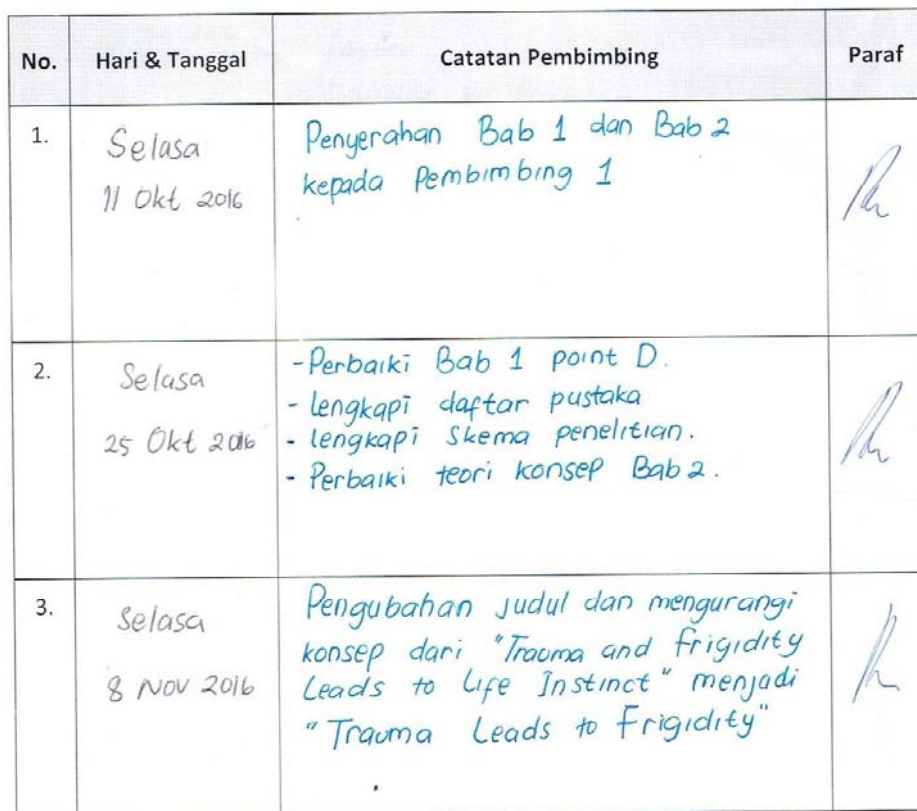 No. Hari & Tanggal Catatan Pembimbing Paraf
1. Selasa
11 Okt 2016
Penyerahan Bab 1 dan Bab 2
kepada Pembimbing 1
2. Selasa
25 Okt 2016
-Perbaiki Bab 1 point D.
- lengkapi daftar pustaka
- lengkapi skema penelitian.
- Perbaiki teori konsep Bab 2.
3. Selasa
8 Nov 2016
Pengubahan judul dan mengurangi
konsep dari "Trauma and Frigidity
Leads to Life Instinct" menjadi
"Trauma Leads to Frigidity"